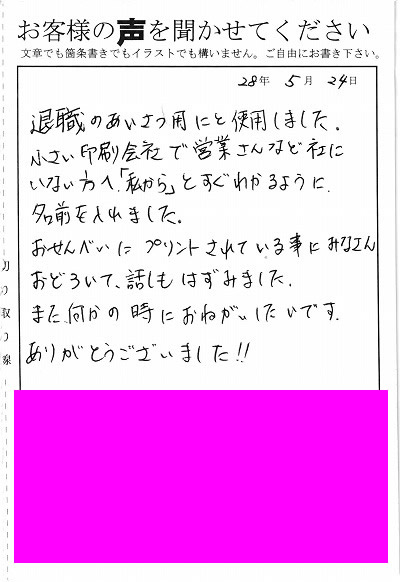 お客様の声を聞かせてください
文章でも箇条書きでもイラストでも構いません。ご自由にお書き下さい。
28年 5月 24日
退職のあいさつ用にと使用しました。
小さい印刷会社で営業さんなど社に
いない方へ「私から」とすぐわかるように
名前を入れました。
おせんべいにプリントされている事にみなさん
おどろいて、話しもはずみました。
また何かの時におねがいしたいです。
ありがとうございました!!
切り取り線